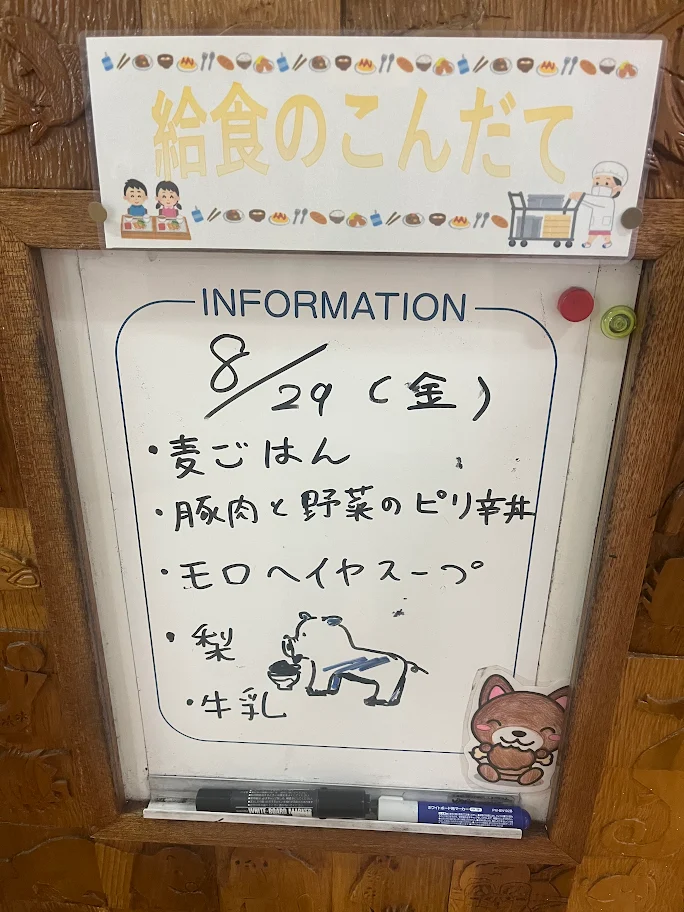 給食のこんだて
INFORMATION
8/29(金)
・麦ごはん
・豚肉と野菜のピリ辛丼
・モロヘイヤスープ
・梨
・牛乳
WHITE BOARD MARKER
ホワイトボード用マーカー